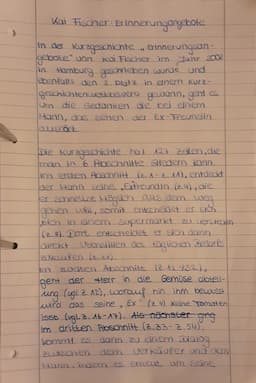 Kai Fischer: Erinnerungsangebote
In der Kurzgeschichte „Erinnerungsan-
gebote" von Kai Fischer im Jahr 2001
in Hamburg geschrieben wurde und
ebenfalls den 2. Platz in einem Kurz-
geschichtenwettbewerb gewann, geht es
um die Gedanken die bei einem
Mann, das sehen der Ex-Freundin
auslöst.
Die Kurzgeschichte hat 127 Zeilen, die
man in 6 Abschnitte gliedern kann.
Im ersten Abschnitt (z. 1- z. 11), entdeckt
der Mann seine „Exfreundin" (z.4), die
er sonst aus dem weg
gehen will, somit entscheidet er sich
sich in einem Supermarkt zu verstecken
(z. 8). Dort entscheidet er sich dann
direkt Utensilien des täglichen Bedarfs
einkaufen (z. 11).
Im zweiten Abschnitt (z. 12 -z. 32),
geht der Herr in die Gemüse abteil-
ung (vgl. z. 12), worauf hin ihm bewusst
wird das seine „Ex" (z. ) keine Tomaten
isst (vgl. z. 16- 17). Als nächster ging
Im dritten Abschnitt (z. 33- z. 54),
kommt es dann zu einem Dialog
zwischen dem Verkäufer und dem
Mann, indem es erneut um seine